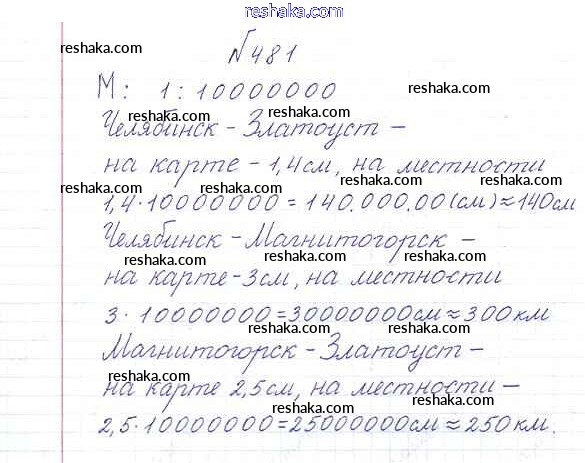 reshaka.com
№481
reshaka.com reshaka.com
М: 1:10000000
reshaka.com reshaka.com
Челябинск - Златоуст -
reshaka.com
на карте - 1,4см, на местности
reshaka.com reshaka.com reshaka.com
1,4·10000000=140.000.00(см)≈140см
Челябинск - Магнитогорск -
reshaka.com reshaka.com
на карте-3см, на местности
3·10000000=30000000см≈300км
reshaka.com reshaka.com
Магнитогорск - Златоуст -
reshaka.com reshaka.com
на карте 2,5см, на местности -
reshaka.com reshaka.com
2,5·10000000=25000000см≈250км.
reshaka.com